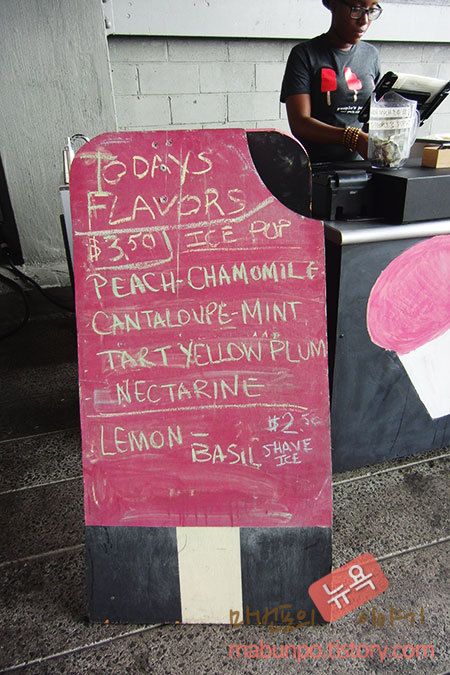 TODAYS
FLAVORS
$3.50 ICE POP
PEACH-CHAMOMILE
CANTALOUPE-MINT
TART YELLOW PLUM
NECTARINE
LEMON-
BASIL
$2.50
SHAVE
ICE
people's pops
뉴욕
이야기
mabunpo.tistory.com